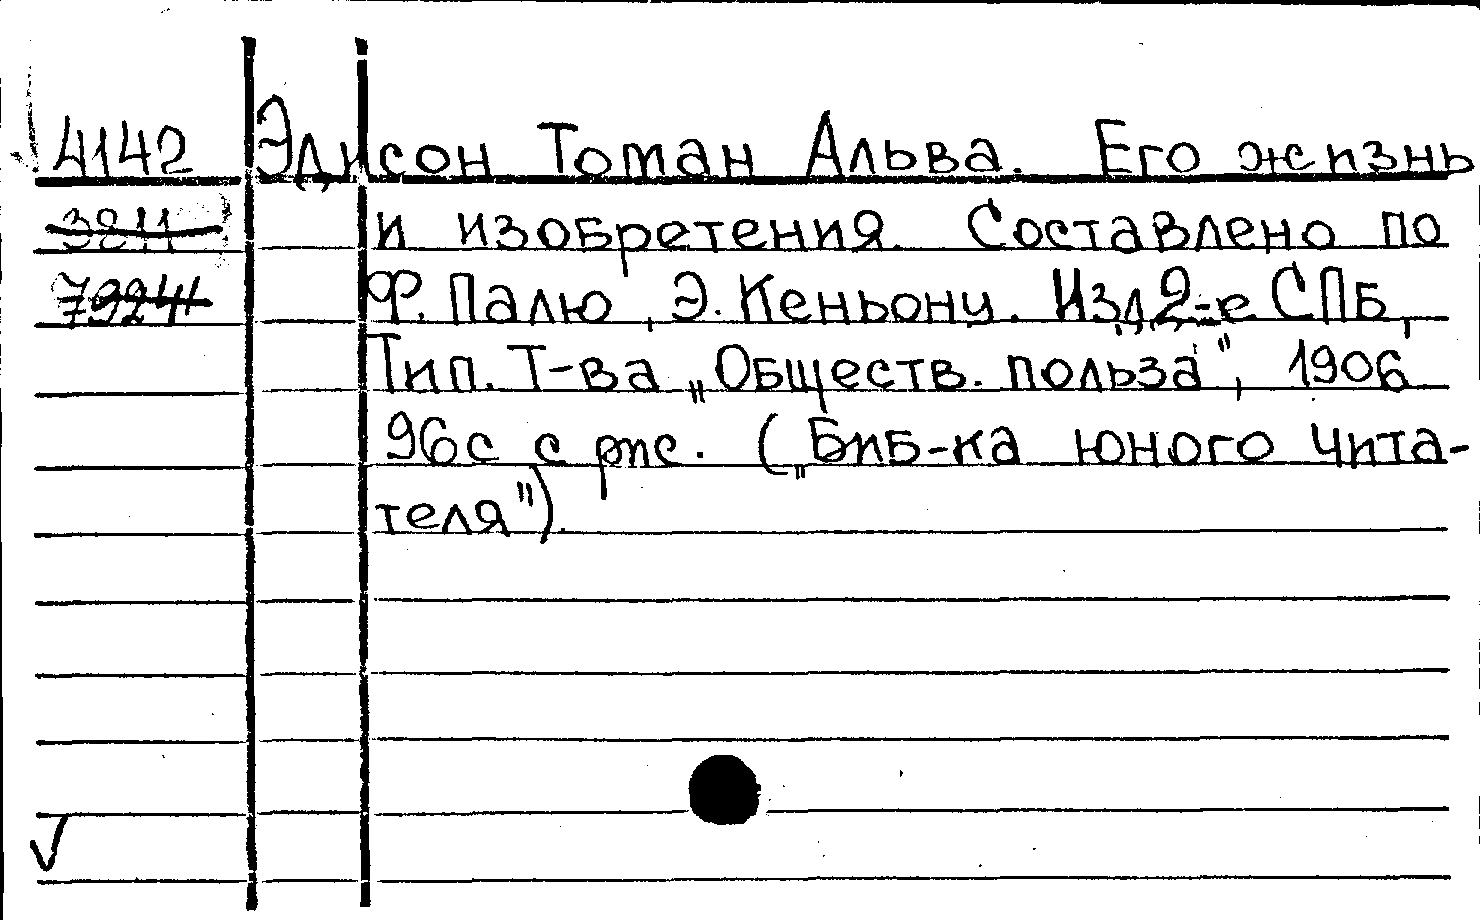 4142 Эдисон Томан Альва. Его жизнь
3811 и изобретения. Составлено по
79241 Ф. Палю, Э. Кеньону. Изд 2-е СПБ,
Тип. Т-ва „Обществ. польза", 1906
96с с рис. („Биб-ка юного чита-
теля").